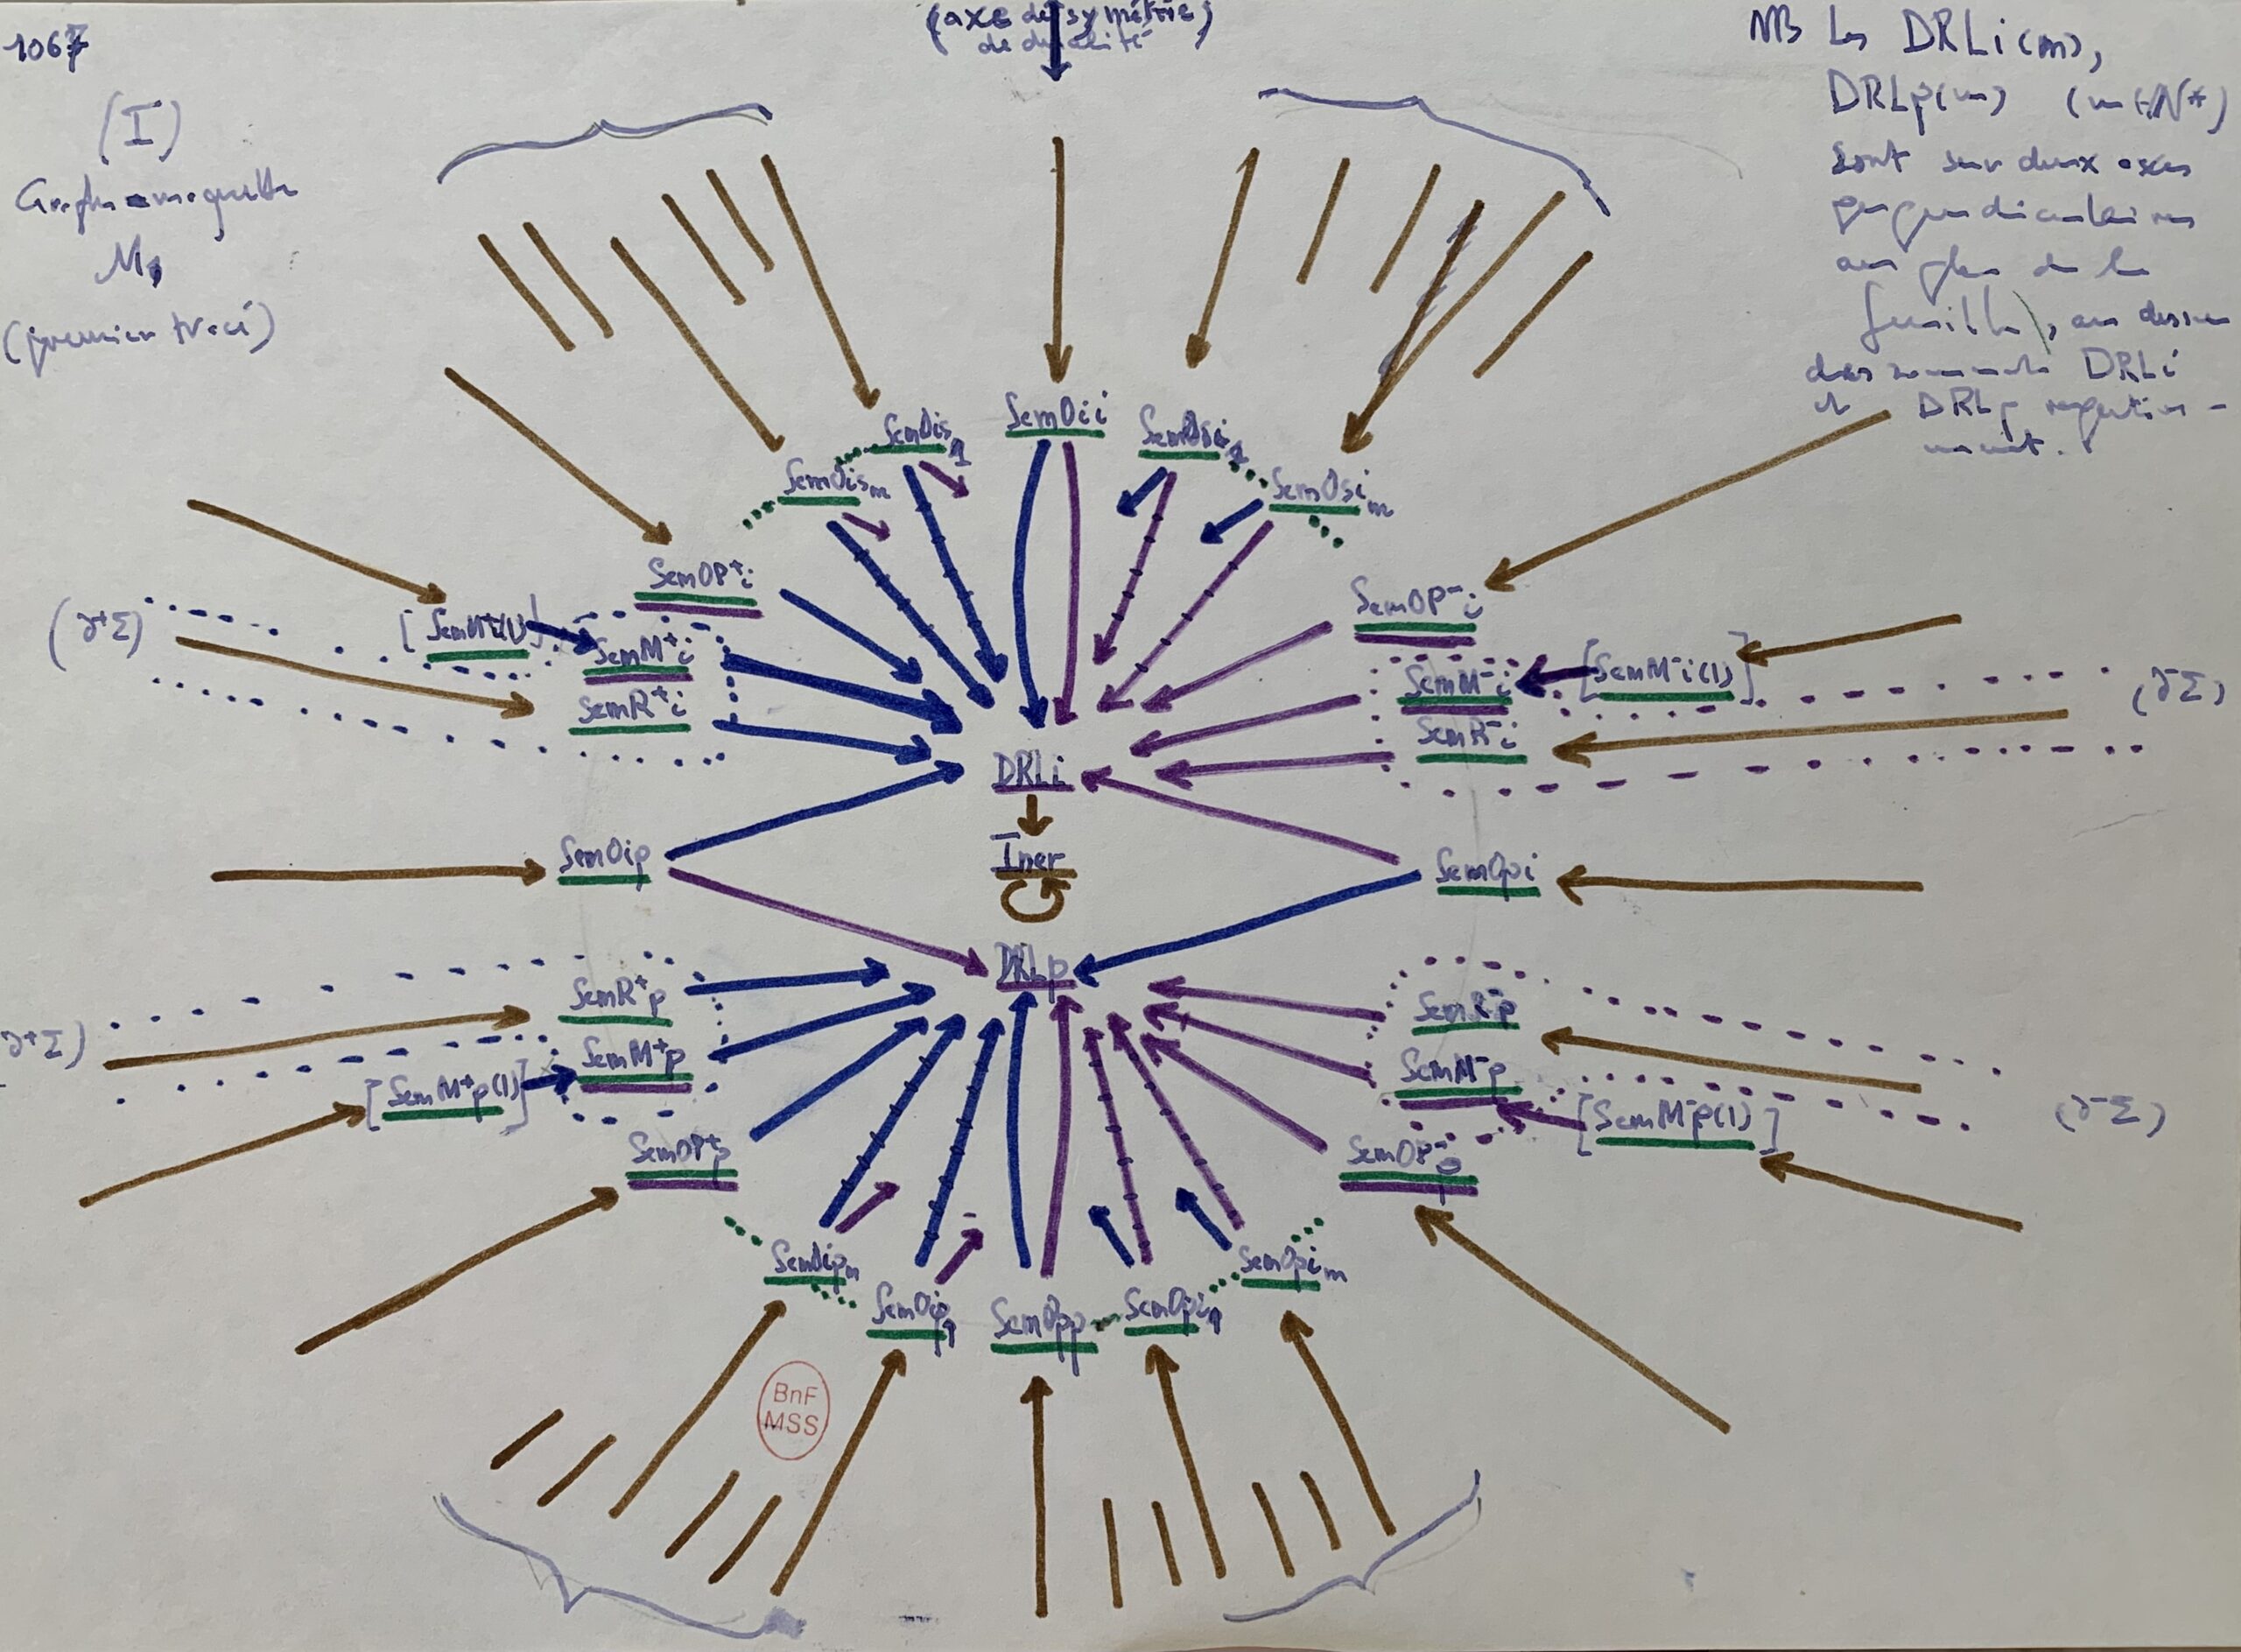 1067
(axe de symétrie
de dualité
(I)
Graphe-maquette
(premier tracé)
NB Les DRLi(m),
DRLp(m) (m∈N*)
sont sur deux axes
perpendiculaires
au plan de la
feuille, au dessus
des sommets DRLi
et DRLp respective-
ment.
SemOis1
SemOii
SemOsi1
SemOism
SemOsim
SemOP⁺i
SemOP⁻i
(∂⁺Σ)
[SemM⁺i(1)]
SemM⁺i
SemM⁻i
[SemM⁻i(1)]
(∂⁻Σ)
SemR⁺i
SemR⁻i
DRLi
SemOip
Iner
SemOpi
DRLp
SemR⁺p
SemR⁻p
∂⁺Σ)
SemM⁺p
SemM⁻p
[SemM⁺p(1)]
[SemM⁻p(1)]
(∂⁻Σ)
SemOP⁺p
SemOP⁻p
SemOipn
SemOpim
SemOip1
SemOpp
SemOpi1
BnF
MSS